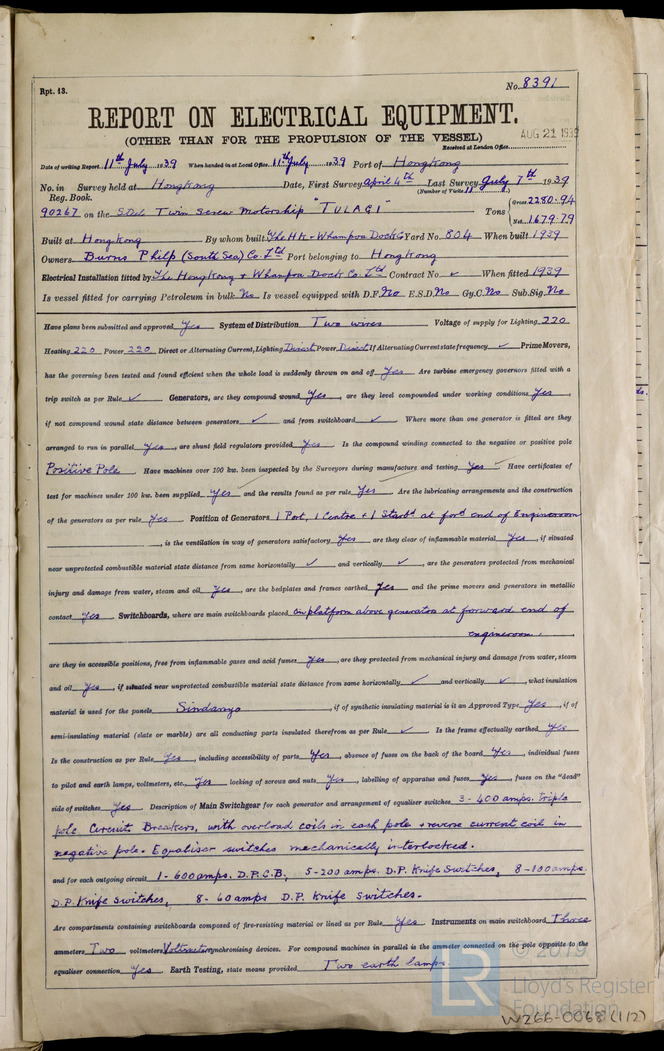 Rpt. 13.
No. 8391
REPORT ON ELECTRICAL EQUIPMENT.
(OTHER THAN FOR THE PROPULSION OF THE VESSEL)
AUG 21 1939
Received at London Office
Date of writing Report 11th July 1939 When handed in at Local Office 11th July 1939 Port of Hongkong
No. in Survey held at Hongkong Date, First Survey April 4th Last Survey July 7th 1939
Reg. Book. (Number of Visits 11
90267 on the S.Del Twin Screw Motorship "TULAGI" Tons { Gross 2280.94 Net 1679.79
Built at Hongkong By whom built The HK & Whampoa Dock Co Yard No. 804 When built 1939
Owners Burns Philp (South Sea) Co Ltd Port belonging to Hongkong
Electrical Installation fitted by The Hongkong & Whampoa Dock Co. Ltd Contract No. ✓ When fitted 1939
Is vessel fitted for carrying Petroleum in bulk No Is vessel equipped with D.F. No E.S.D. No Gy.C. No Sub.Sig. No
Have plans been submitted and approved Yes System of Distribution Two wires Voltage of supply for Lighting 220
Heating 220 Power 220 Direct or Alternating Current, Lighting Direct Power Direct If Alternating Current state frequency ✓ Prime Movers,
has the governing been tested and found efficient when the whole load is suddenly thrown on and off Yes Are turbine emergency governors fitted with a
trip switch as per Rule ✓ Generators, are they compound wound Yes, are they level compounded under working conditions Yes,
if not compound wound state distance between generators ✓ and from switchboard ✓ Where more than one generator is fitted are they
arranged to run in parallel Yes, are shunt field regulators provided Yes Is the compound winding connected to the negative or positive pole
Positive Pole Have machines over 100 kw. been inspected by the Surveyors during manufacture and testing Yes Have certificates of
test for machines under 100 kw. been supplied Yes and the results found as per rule Yes Are the lubricating arrangements and the construction
of the generators as per rule Yes Position of Generators 1 Port, 1 Centre & 1 Starbd at ford end of Engineroom
, is the ventilation in way of generators satisfactory Yes are they clear of inflammable material Yes, if situated
near unprotected combustible material state distance from same horizontally ✓ and vertically ✓, are the generators protected from mechanical
injury and damage from water, steam and oil Yes, are the bedplates and frames earthed Yes and the prime movers and generators in metallic
contact Yes Switchboards, where are main switchboards placed on platform above generators at forward end of
engineroom.
are they in accessible positions, free from inflammable gases and acid fumes Yes, are they protected from mechanical injury and damage from water, steam
and oil Yes, if situated near unprotected combustible material state distance from same horizontally ✓ and vertically ✓, what insulation
material is used for the panels Sindanyo, if of synthetic insulating material is it an Approved Type Yes, if of
semi-insulating material (slate or marble) are all conducting parts insulated therefrom as per Rule ✓ Is the frame effectually earthed Yes
Is the construction as per Rule Yes, including accessibility of parts Yes, absence of fuses on the back of the board Yes, individual fuses
to pilot and earth lamps, voltmeters, etc. Yes locking of screws and nuts Yes, labelling of apparatus and fuses Yes, fuses on the "dead"
side of switches Yes Description of Main Switchgear for each generator and arrangement of equaliser switches 3-400 amps. triple
pole Circuit Breakers, with overload coils in each pole & reverse current coil in
negative pole. Equaliser switches mechanically interlocked.
and for each outgoing circuit 1-600 amps. D.P.C.B., 5-200 amps. D.P. Knife Switches, 8-100 amps.
D.P. Knife Switches, 8-60 amps D.P. Knife Switches.
Are compartments containing switchboards composed of fire-resisting material or lined as per Rule Yes Instruments on main switchboard Three
ammeters Two voltmeters Voltmeter synchronising devices. For compound machines in parallel is the ammeter connected on the pole opposite to the
equaliser connection Yes Earth Testing, state means provided Two earth lamps.
© 2019
LR Lloyd's Register
Foundation
W266-0068 (1/2)